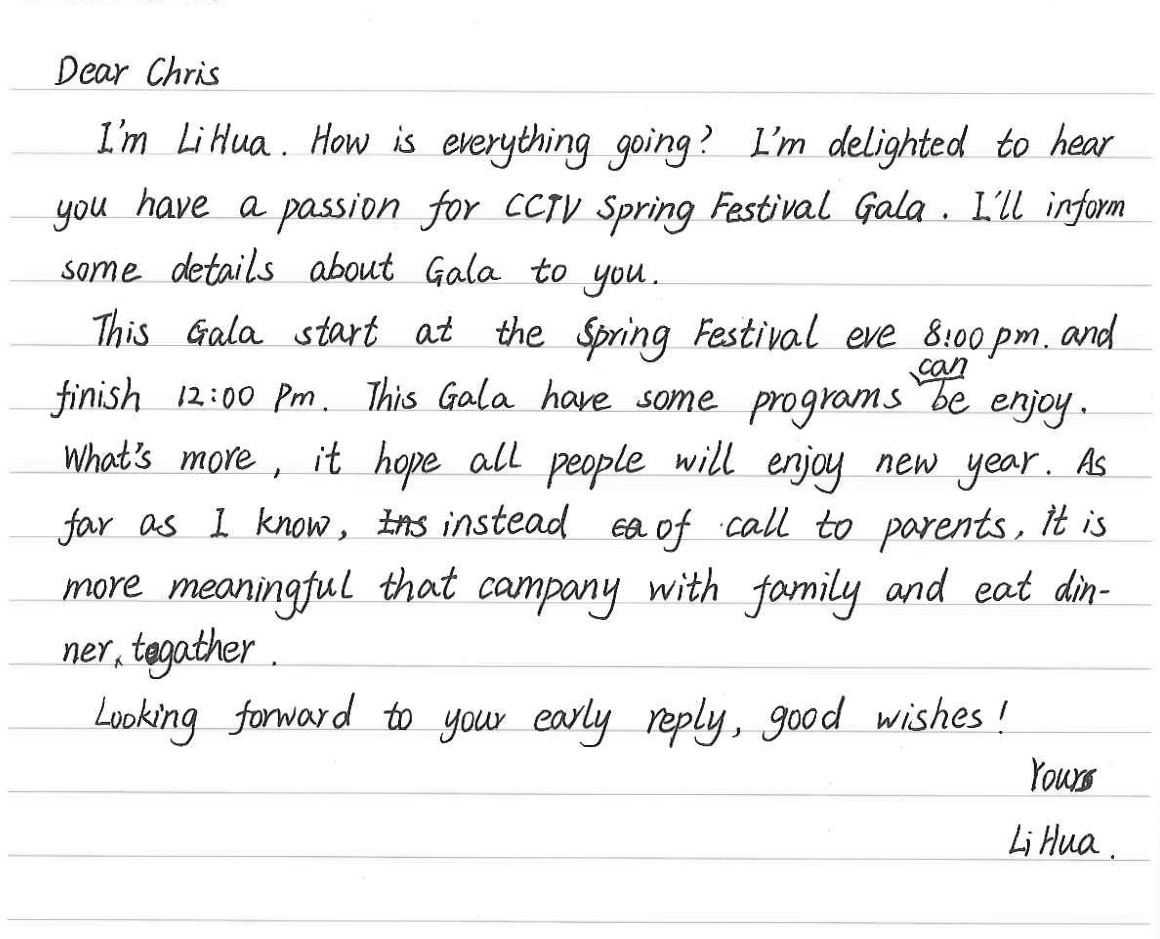 Dear Chris
I'm Li Hua. How is everything going? I'm delighted to hear
you have a passion for CCTV Spring Festival Gala. I'll inform
some details about Gala to you.
This Gala start at the Spring Festival eve 8:00 pm. and
finish 12:00 Pm. This Gala have some programs can be enjoy.
What's more, it hope all people will enjoy new year. As
far as I know, Ins instead ca of call to parents, it is
more meaningful that campany with family and eat din-
ner, togather.
Looking forward to your early reply, good wishes!
Yours
Li Hua.